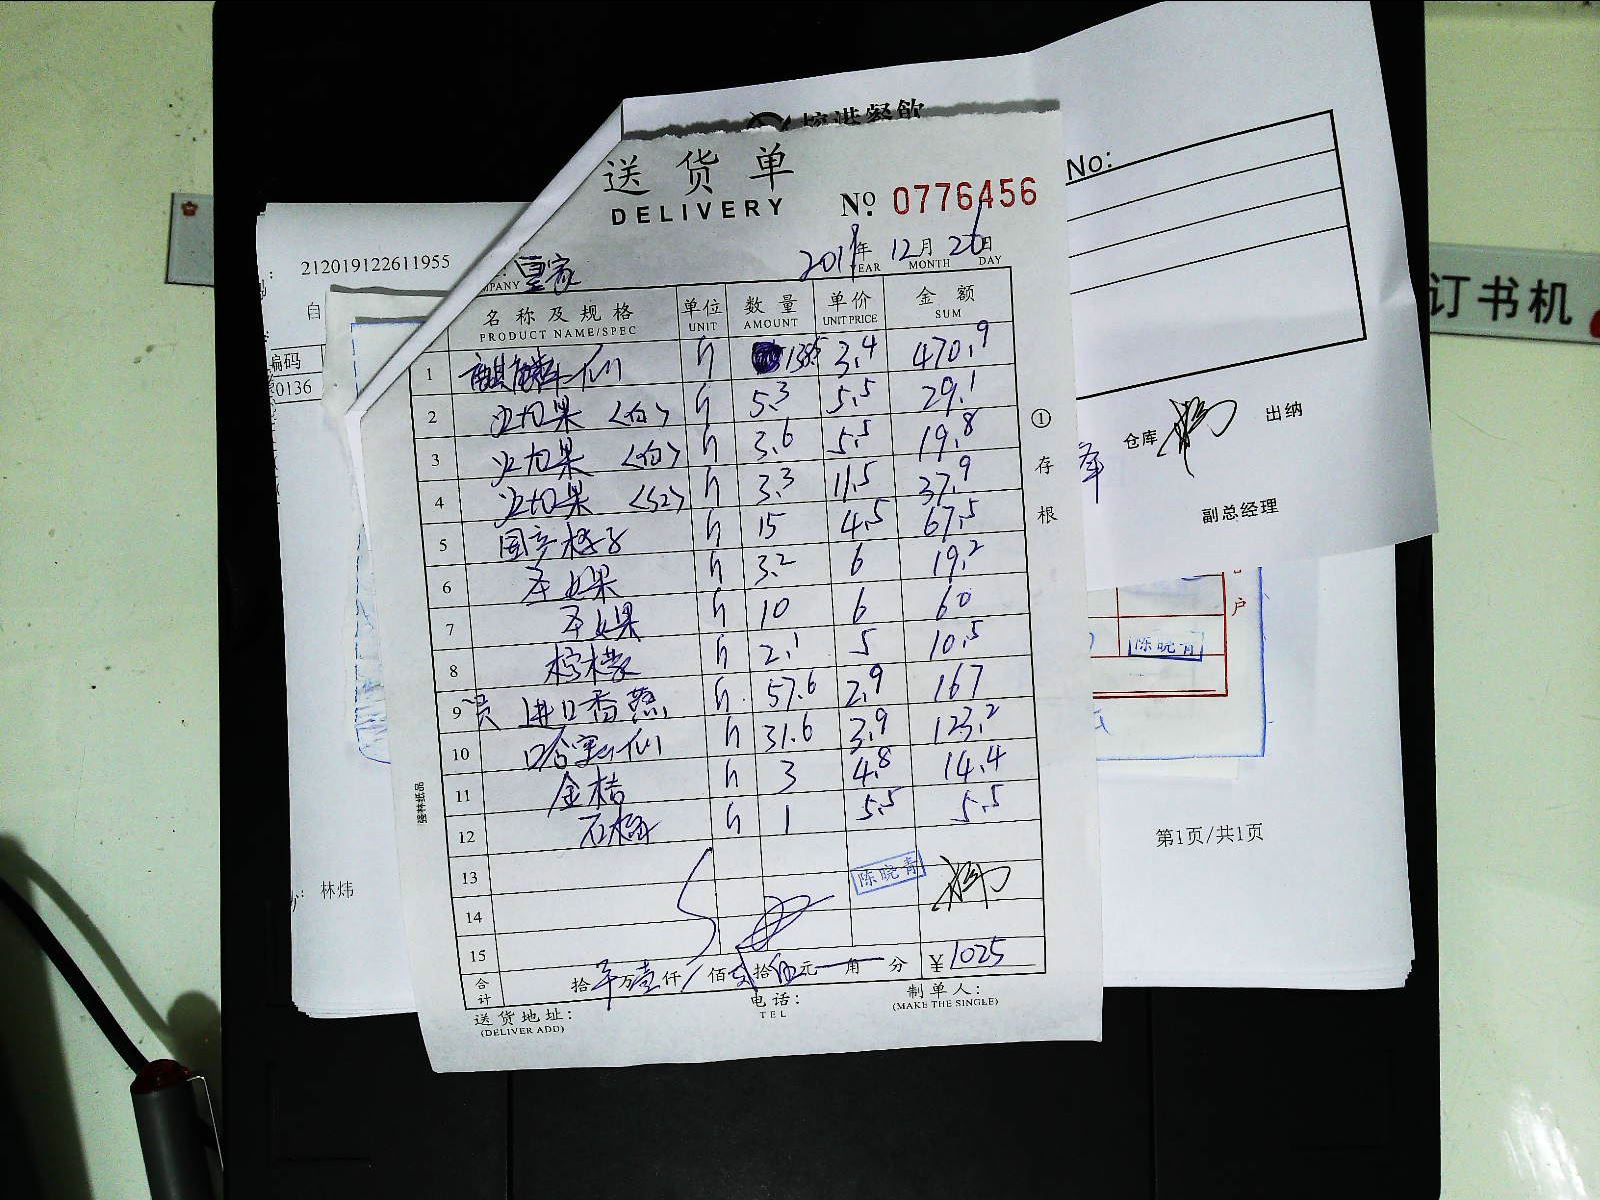 控港餐飲
送货单
DELIVERY
No. 0776456
No:
212019122611955
皇家
2019年 12月 26日
YEAR MONTH DAY
名称及规格 单位 数量 单价 金额
PRODUCT NAME/SPEC UNIT AMOUNT UNIT PRICE SUM
1 麒麟车仙 h 138.5 3.4 470.9
2 火龙果〈白〉 h 5.3 5.5 29.1
3 火龙果〈白〉 h 3.6 5.5 19.8
4 火龙果〈红〉 h 3.3 11.5 37.9
5 国产橙子 h 15 4.5 67.5
6 圣女果 h 3.2 6 19.2
7 圣女果 h 10 6 60
8 柠檬 h 2.1 5 10.5
9 员 进口香蕉 h 57.6 2.9 167
10 哈密仙 h 31.6 3.9 123.2
11 金桔 h 3 4.8 14.4
12 石榴 h 1 5.5 5.5
13
14
15
陈晓青
合计 拾 万壹仟 佰贰拾伍元 角 分 ¥1025
送货地址:
(DELIVER ADD)
电话:
TEL
制单人:
(MAKE THE SINGLE)
①存根
自
编码
0136
林炜
仓库
出纳
副总经理
户
陈晓青
第1页/共1页
订书机